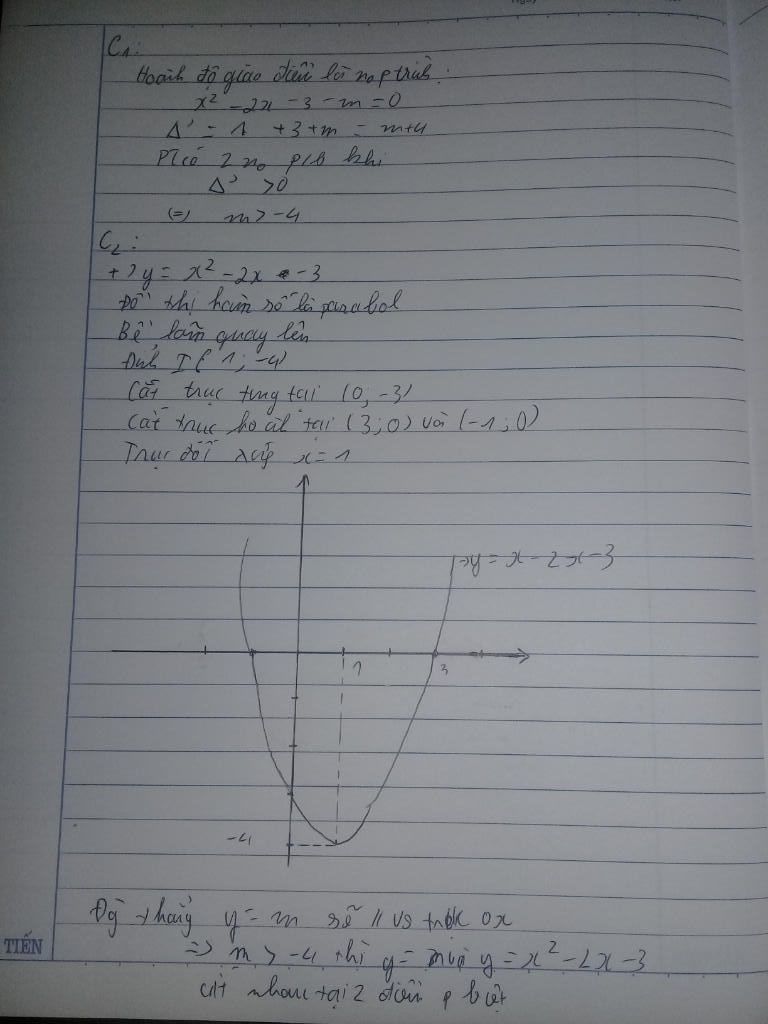 C1:
Hoành độ giao điểm là no ptrình:
x² - 2x - 3 - m = 0
Δ' = 1 + 3 + m = m+4
PT có 2 no p/b khi
Δ' > 0
(=) m > -4
C2:
+) y = x² - 2x - 3
Đồ thị hàm số là parabol
Bề lõm quay lên
Đỉnh I(1; -4)
Cắt trục tung tại (0; -3)
Cắt trục hoành tại (3; 0) và (-1; 0)
Trục đối xứng x = 1
y = x - 2x - 3
1
3
-4
Đg thẳng y = m sẽ // vs trục Ox
=> m > -4 thì y = m và y = x² - 2x - 3
TIẾN
cắt nhau tại 2 điểm p biệt